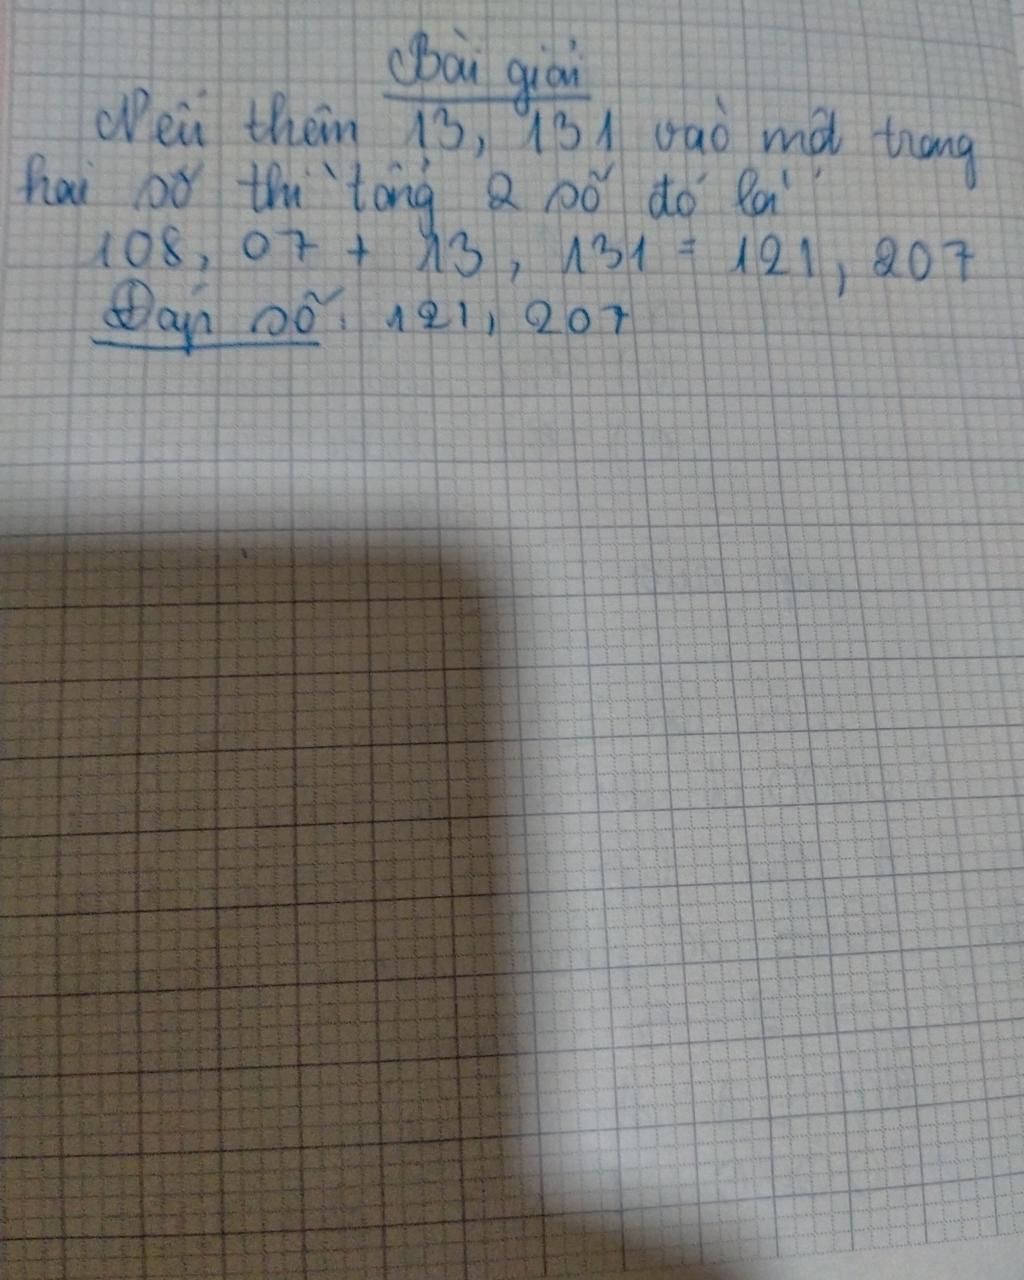 Bài giải
Nếu thêm 13, 131 vào một trong
hai số thì tổng 2 số đó là
108, 07 + 13, 131 = 121, 207
Đáp số: 121, 207